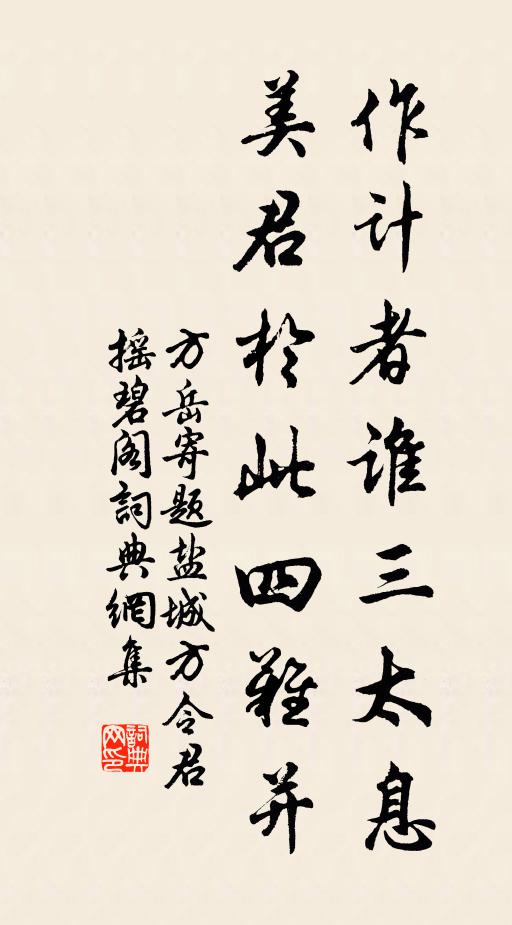 作计者谁三太息
美君於此四难并
方岳寄题盐城方令君
摇碧阁詞典網集
詞典
网印